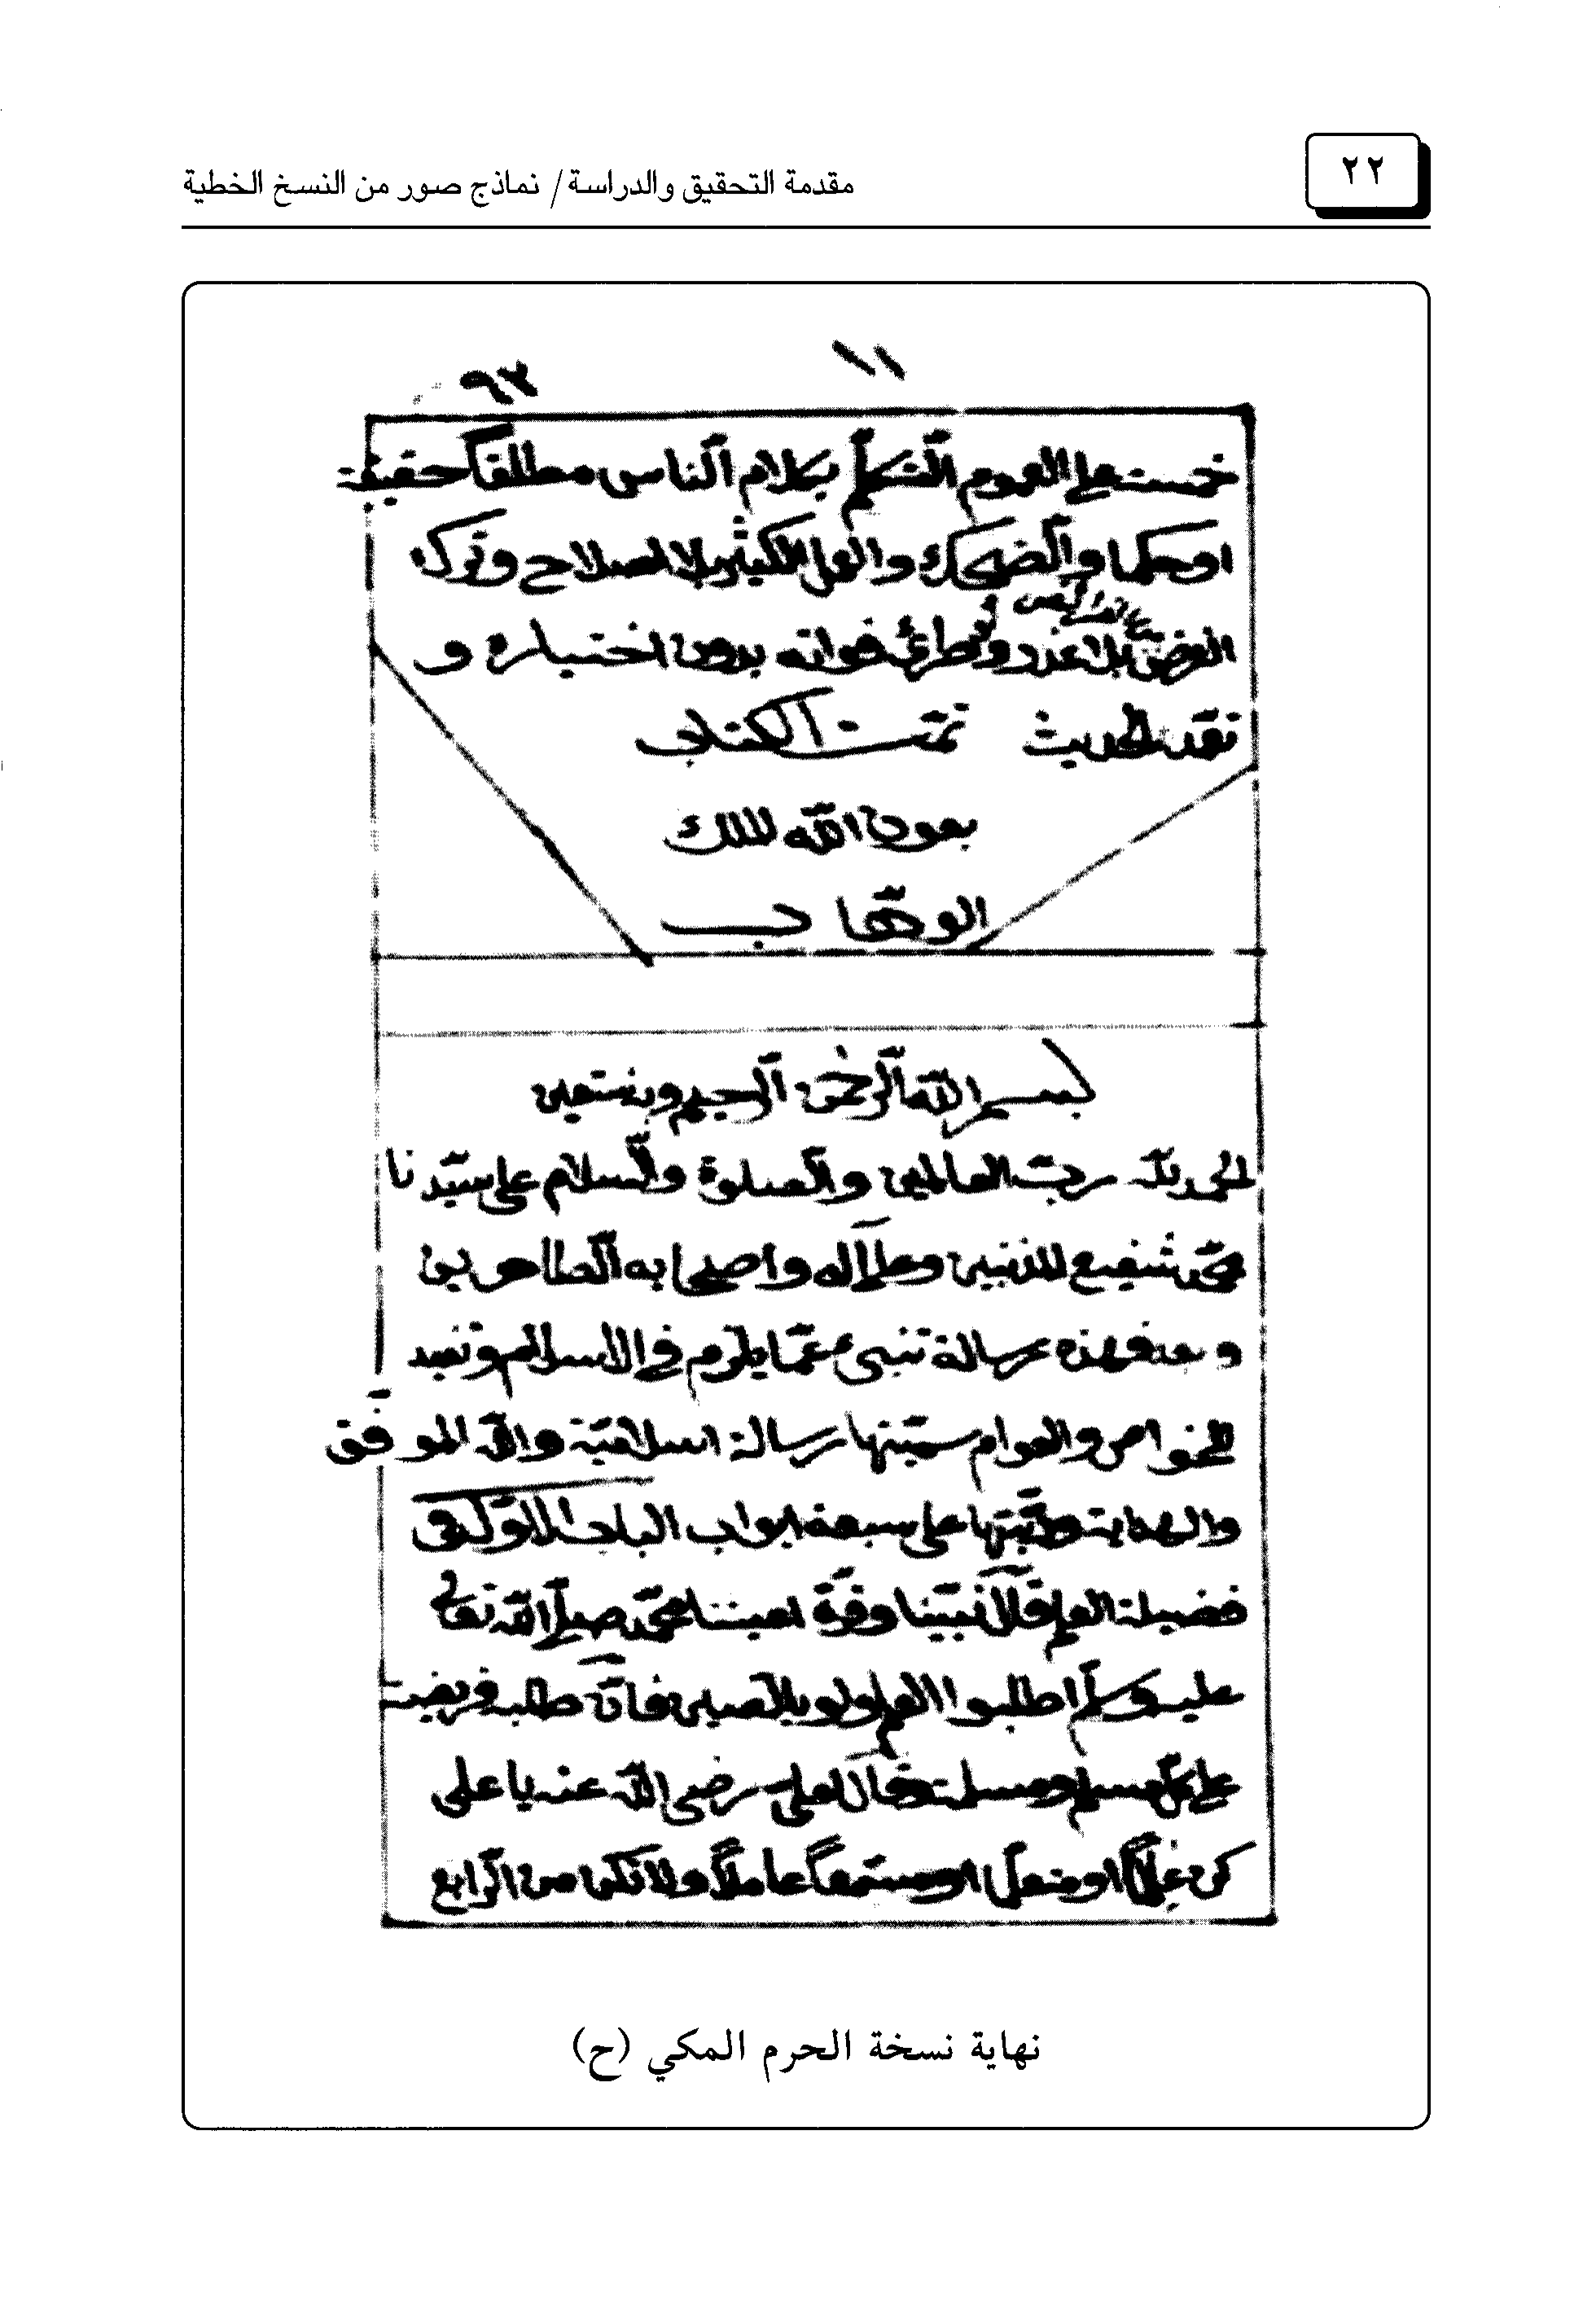 ٢٢
مقدمة التحقيق والدراسة/ نماذج صور من النسخ الخطية
١١
٩٣
خمست على العموم التكلم بكلام الناس مطلقاً حقيقة
او حكما والضحك والعمل الكثير بلا اصلاح وترك
الفرض بلا عذر وتطرئ فواته بدون اختياره و
تعمد الحديث تمت الكتاب
بعون الله الملك
الوهّاب
بسم الله الرّحمن الرّحيم وبه نستعين
الحمد لله ربّ العالمين والصّلوة والسّلام على سيّدنا
محمّد شفيع المذنبين وعلى آله واصحابه الطّاهرين
وبعد فهذه رسالة تنبىء عمّا يلزم في الاسلام وتفيد
الخواص والعوام سمّيتها رسالة اسلاميّة والله الموفّق
والهداية ورتّبتها على سبعة ابواب الباب الاوّل في
فضيلة العلم قال نبيّنا وقرّة اعيننا محمّد صلّى الله تعالى
عليه وسلّم اطلبوا العلم ولو بالصّين فانّ طلبه فريضة
على كلّ مسلم ومسلمة وقال لعلي رضي الله عنه يا علي
كن عالماً او متعلّماً او مستمعاً عاملاً ولا تكن من الرّابع
نهاية نسخة الحرم المكي (ح)